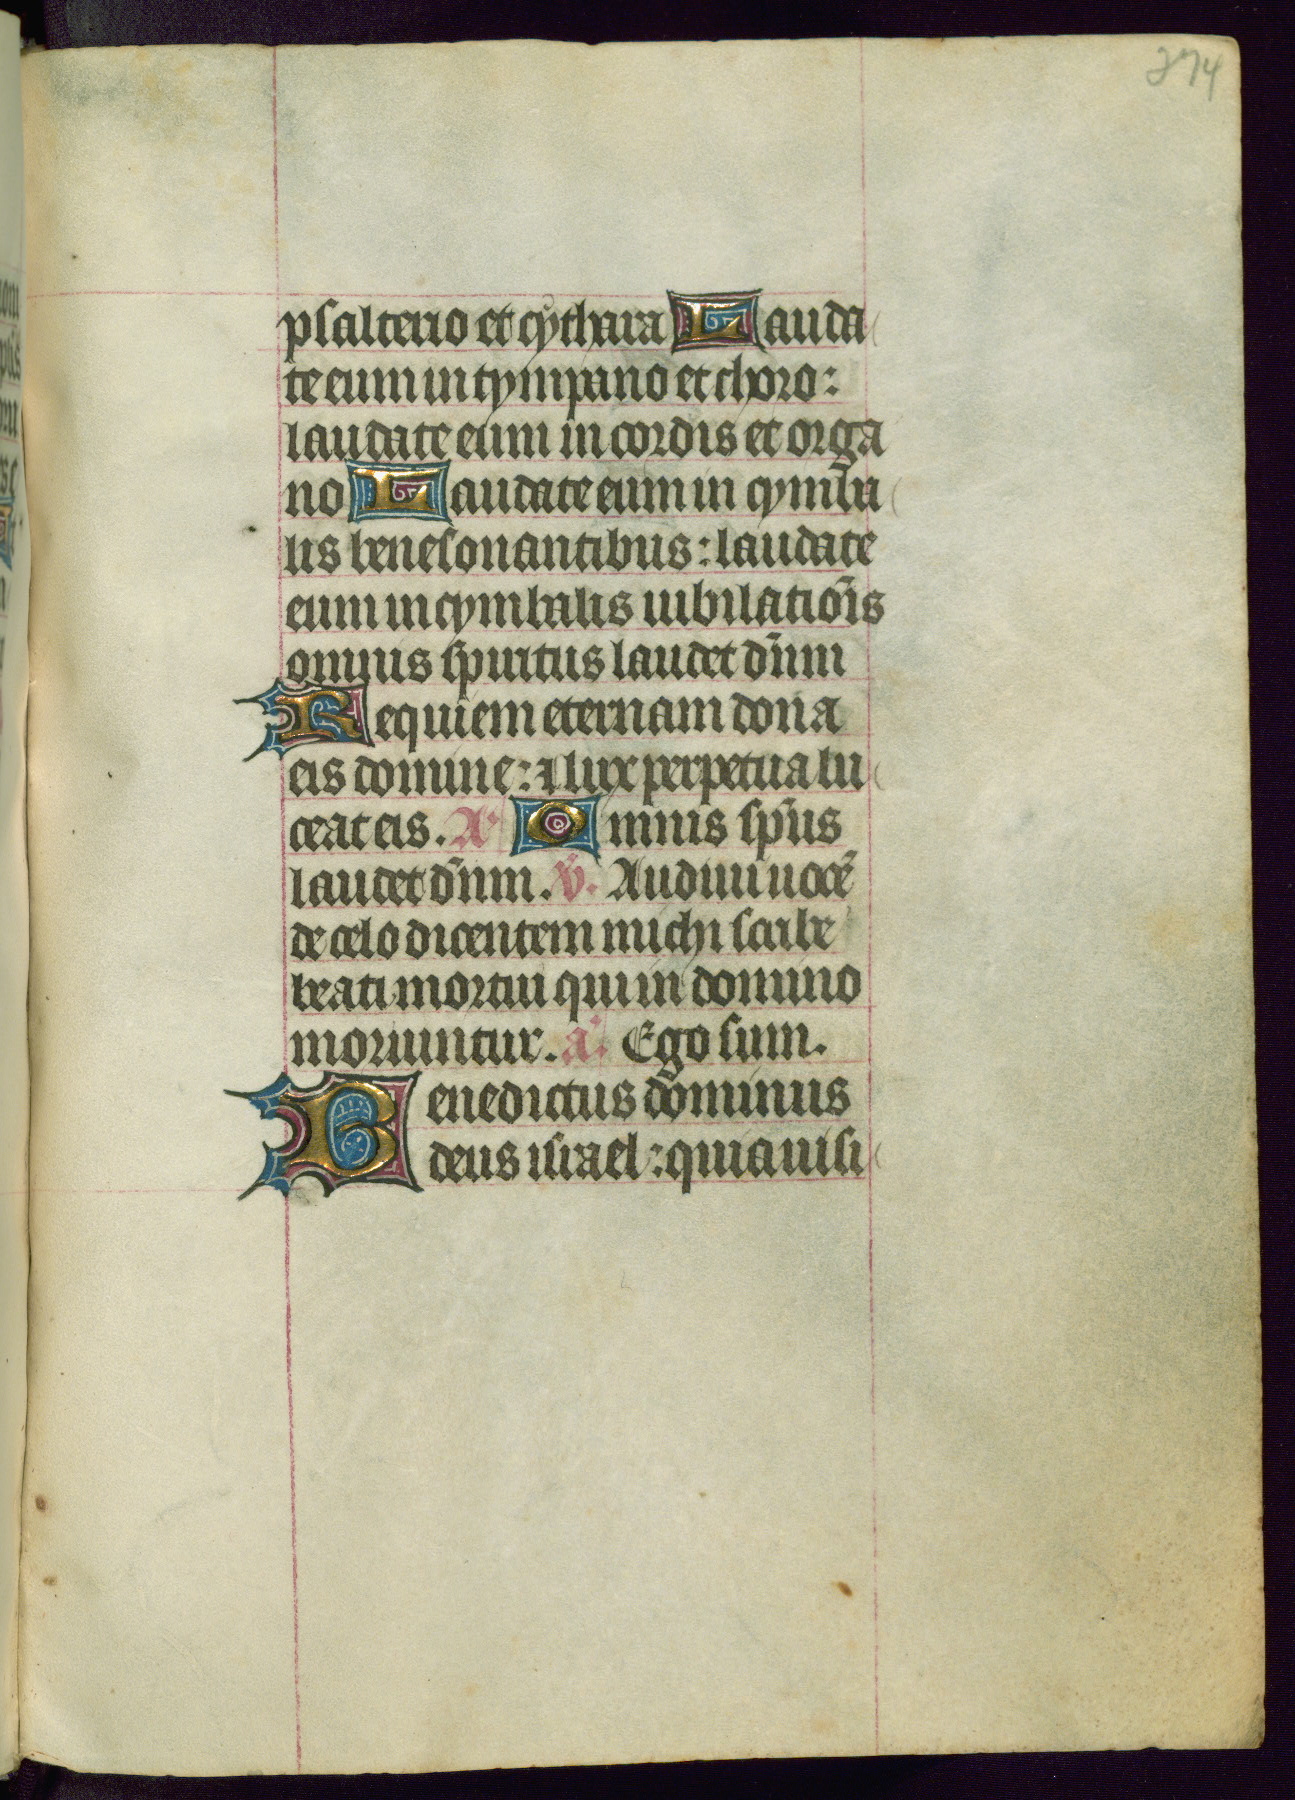 274
psalterio et cythara Lauda
te eum in tympano et choro:
laudate eum in cordis et orga
no Laudate eum in cymba
lis benesonantibus: laudate
eum in cymbalis iubilatiõis
omnis spiritus laudet dñm
Requiem eternam dona
eis domine: ⁊ lux perpetua lu
ceat eis. A' Omnis sp̃us
laudet dñm. V̊. Audiui uocẽ
de celo dicentem michi scribe
beati mortui qui in domino
moriuntur. a'. Ego sum.
Benedictus dominus
deus israel: quia uisi